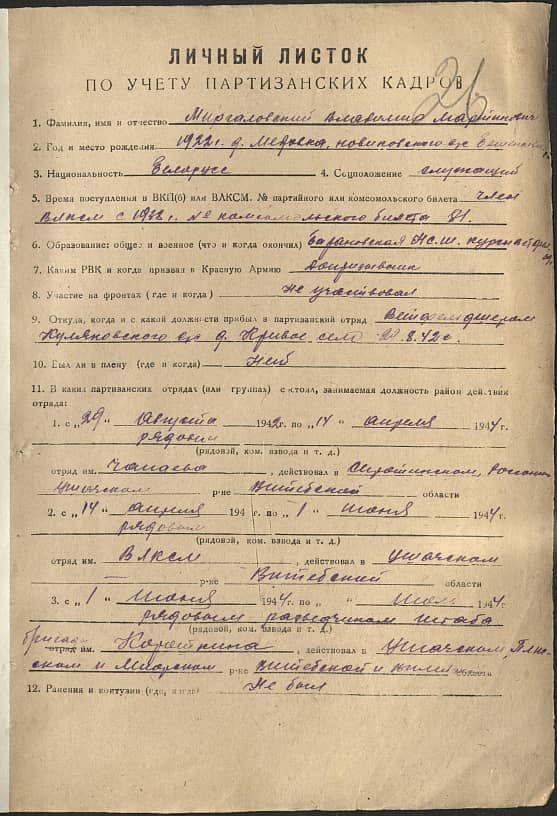 26
ЛИЧНЫЙ ЛИСТОК
ПО УЧЕТУ ПАРТИЗАНСКИХ КАДРОВ
1. Фамилия, имя и отчество Миргаловский Владимир
2. Год и место рождения 1922 г. д.
3. Национальность Белорусс 4. Соцположение служащий
5. Время поступления в ВКП(б) или ВЛКСМ. № партийного или комсомольского билета член
ВЛКСМ с г. № комсомольского билета
6. Образование: общее и военное (что и когда окончил)
7. Каким РВК и когда призван в Красную Армию допризывник
8. Участие на фронтах (где и когда) Не участвовал
9. Откуда, когда и с какой должности прибыл в партизанский отряд Ветфельдшером
д. Кривое село 8.42 г.
10. Был ли в плену (где и когда) Нет
11. В каких партизанских отрядах (или группах) состоял, занимаемая должность район действия
отряда:
1. с „29" Августа 1942 г. по „14" апреля 1944 г.
рядовым
(рядовой, ком. взвода и т. д.)
отряд им. Чапаева, действовал в Сиротинском,
Ушачском р-не Витебской области
2. с „14" апреля 194 г. по „1" июня 1944 г.
рядовым
(рядовой, ком. взвода и т. д.)
отряд им. ВЛКСМ, действовал в Ушачском
р-не Витебской области
3. с „1" июня 1944 г. по „ " 1944 г.
рядовым разведчиком штаба
(рядовой, ком. взвода и т. д.)
бригады
отряд им. Короткина, действовал в Ушачском,
и Миорском р-не Витебской и области
12. Ранения и контузии (где, когда) Не был